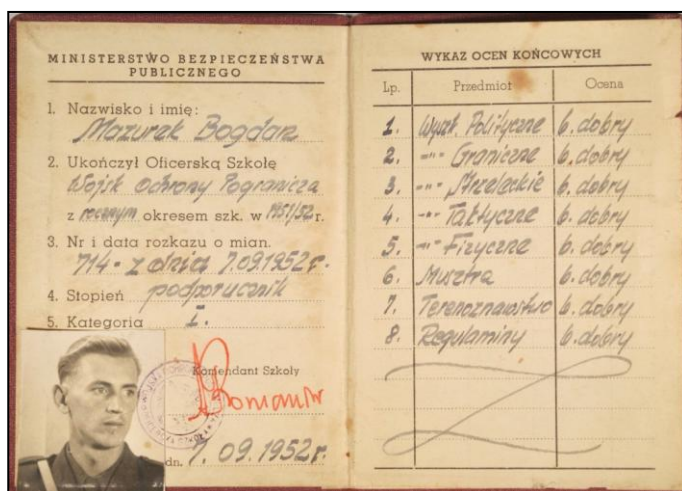 MINISTERSTWO BEZPIECZEŃSTWA
PUBLICZNEGO
1. Nazwisko i imię:
Mazurek Bogdan
2. Ukończył Oficerską Szkołę
Wojsk Ochrony Pogranicza
z rocznym okresem szk. w 1951/52 r.
3. Nr i data rozkazu o mian.
714 - z dnia 7.09.1952 r.
4. Stopień podporucznik
5. Kategoria I.
Komendant Szkoły
dn. 7.09.1952r.
WYKAZ OCEN KOŃCOWYCH
Lp. Przedmiot Ocena
1. Wyszk. Polityczne b. dobry
2. -"- Graniczne b. dobry
3. -"- Strzeleckie b. dobry
4. -"- Taktyczne b. dobry
5. -"- Fizyczne b. dobry
6. Musztra b. dobry
7. Terenoznawstwo b. dobry
8. Regulaminy b. dobry